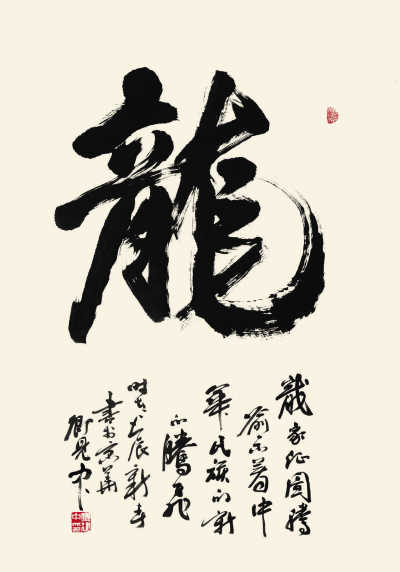 龍
龍象征圖騰
喻示着中
華民族的新
的騰飛
時在壬辰新春
書於京華